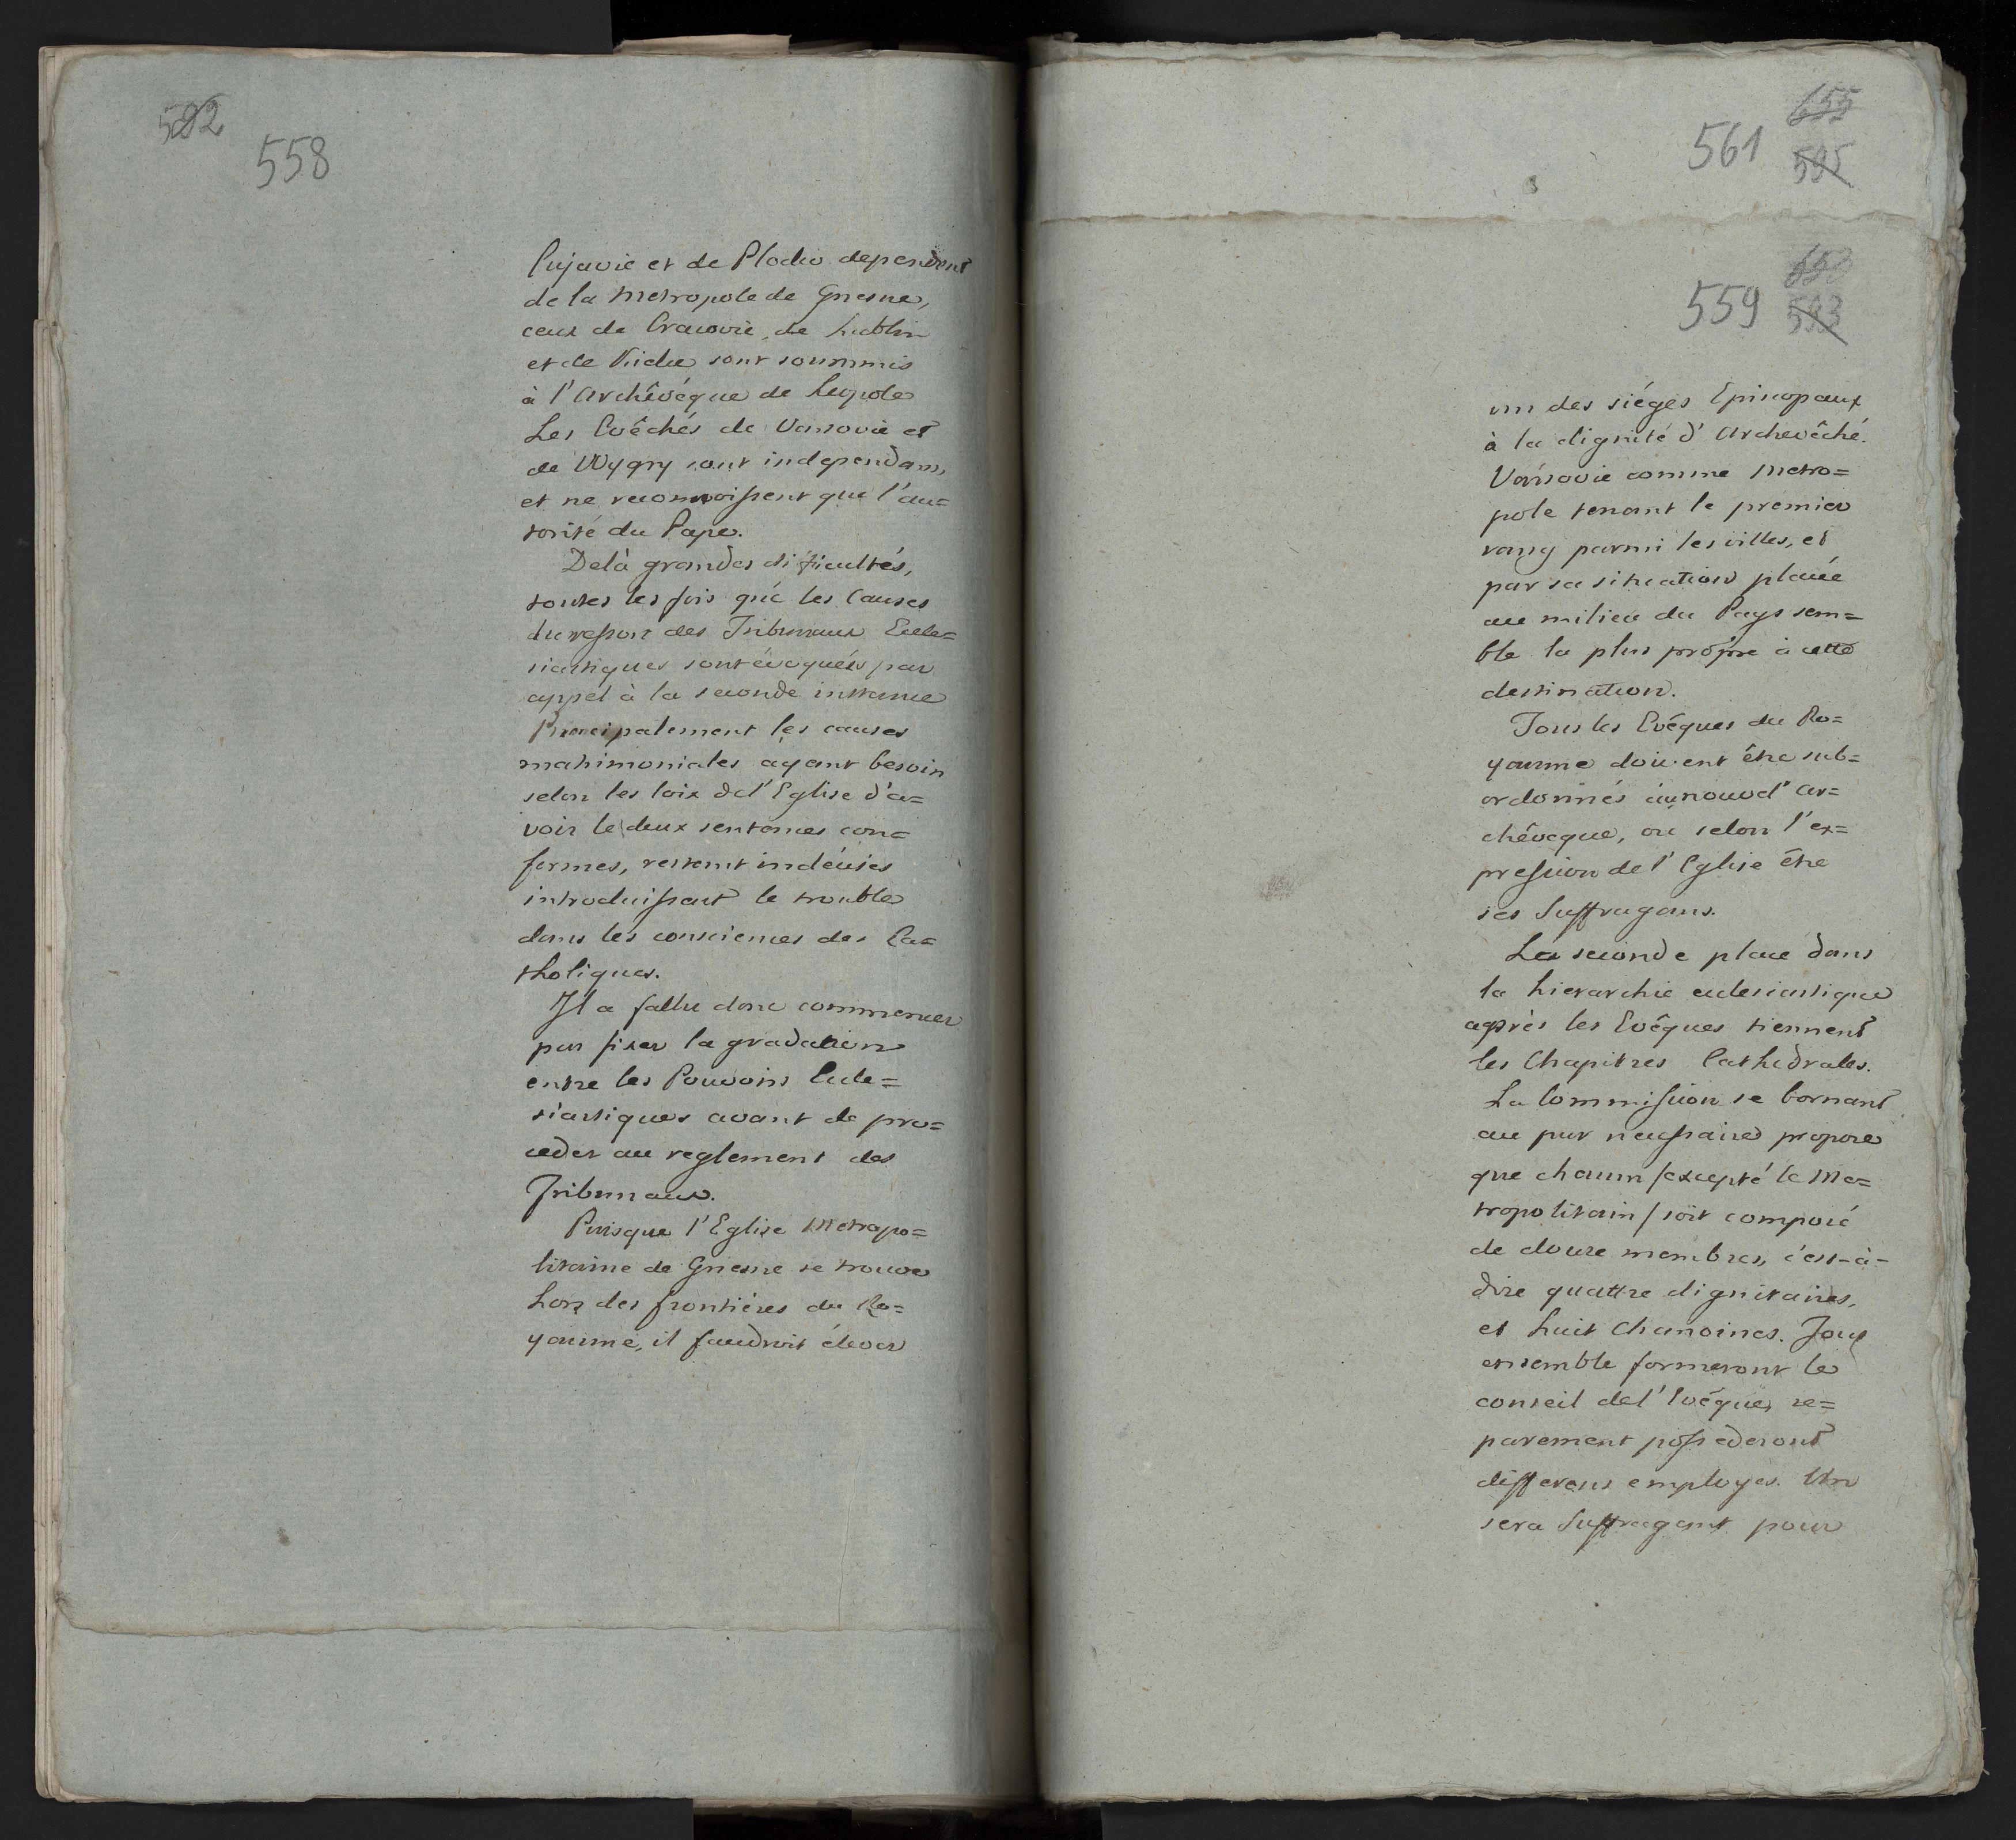 592
558
Cujavie et de Plocko dependent
de la Metropole de Gnesne,
ceux de Cracovie, de Lublin
et de Kielce sont soummis
à l'Archêvéque de Leopole
Les Evêchés de Varsovie et
de Wygry sont independans,
et ne reconnoissent que l'au=
torité du Pape.
Delà grandes difficultés,
toutes les fois que les Causes
du ressort des Tribunaux Eccle=
siastiques sont évoquées par
appel à la seconde instance
Principalement les causes
matrimoniales ayant besoin
selon les loix del' Eglise d'a=
voir le deux sentences con=
formes, restent indécises
introduissent le trouble
dans les consciences des Ca=
tholiques.
Il a fallu donc commencer
par fixer la gradation
entre les Pouvoirs Eccle=
siastiques avant de pro=
ceder au reglement des
Tribunaux.
Puisque l'Eglise Metropo=
litaine de Gnesne se trouve
hors des frontiéres du Ro=
yaume, il faudroit élever
655
561
595
653
559
593
un des siéges Episcopaux
à la dignité d'Archevêché.
Varsovie comme Metro=
pole tenant le premier
rang parmi les villes, et
par sa situation placée
au milieu du Pays sem=
ble la plus propre à cette
destination.
Tous les Evêques du Ro=
yaume doivent être sub=
ordonnés au nouvel' Ar=
chêveque, ou selon l'ex=
pression de l' Eglise être
ses Suffragans.
La seconde place dans
la hierarchie eclesiastique
après les Evêques tiennent
les Chapitres Cathedrales.
La Commission se bornant
au pur necessaire propose
que chacun /excepté le Me=
tropolitain/ soit composé
de douze membres, c'est-à-
dire quattre dignitaires,
et huit Chanoines. Tous
ensemble formeront le
conseil del' Evéque, se=
parement possederont
differens employés. Un
sera Suffragant pour